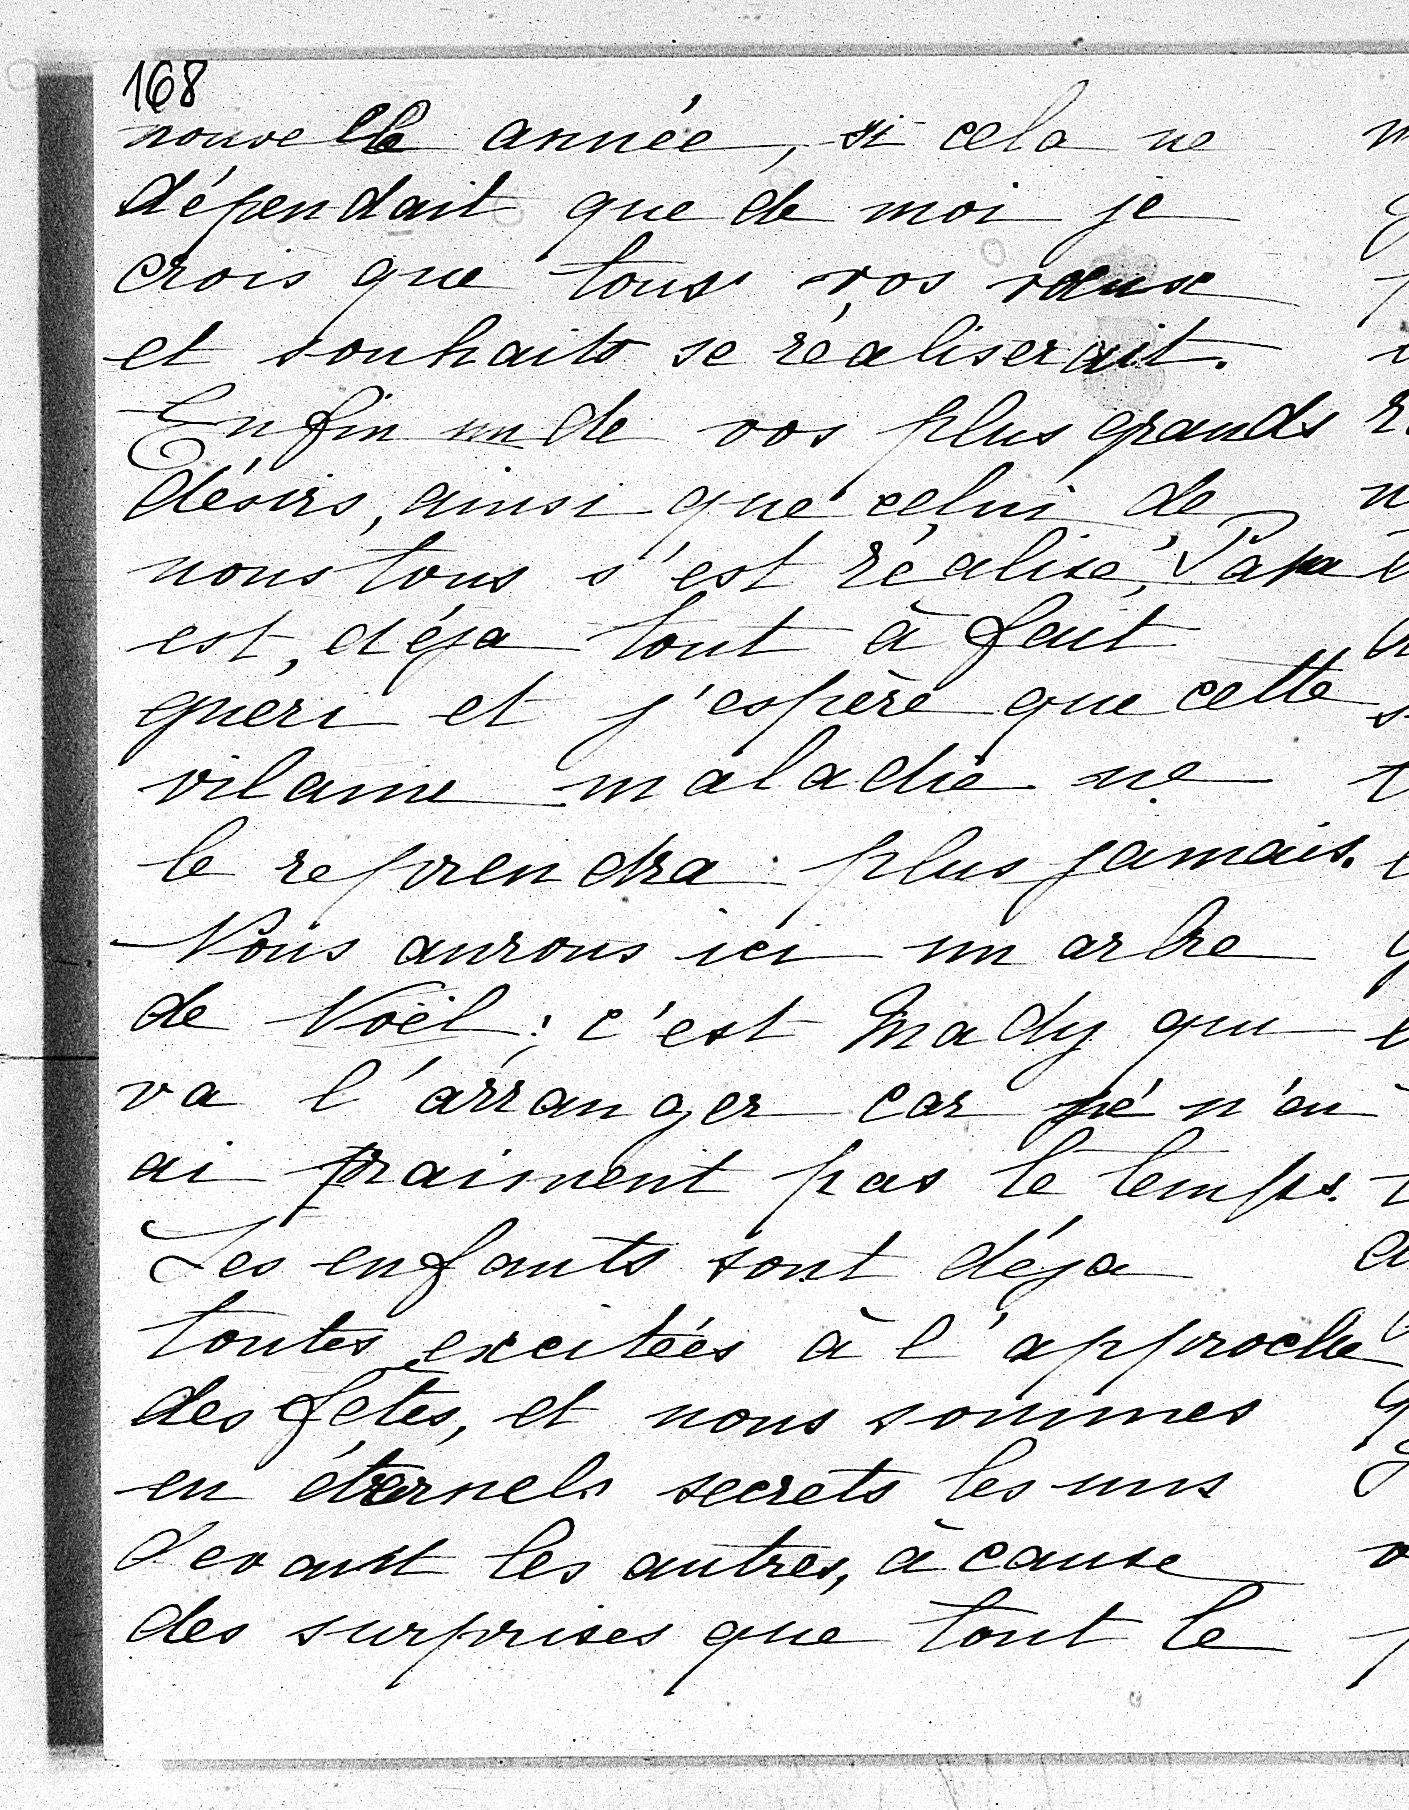 168
nouvelle année, si cela ne
dépendait que de moi je
crois que tous vos vœux
et souhaits se réaliserait.
Enfin un de vos plus grands
désirs, ainsi que celui de
nous tous s'est réalisé, Papa
est, déja tout à fait
guéri et j'espère que cette
vilaine maladie ne
le reprendra plus jamais.
Nous aurons ici un arbre
de Noël; c'est Mady qui
va l'arranger car je n'en
ai vraiment pas le temps.
Les enfants sont déja
toutes excitées à l'approche
des fêtes, et nous sommes
en éternels secrets les uns
devant les autres, à cause
des surprises que tout le